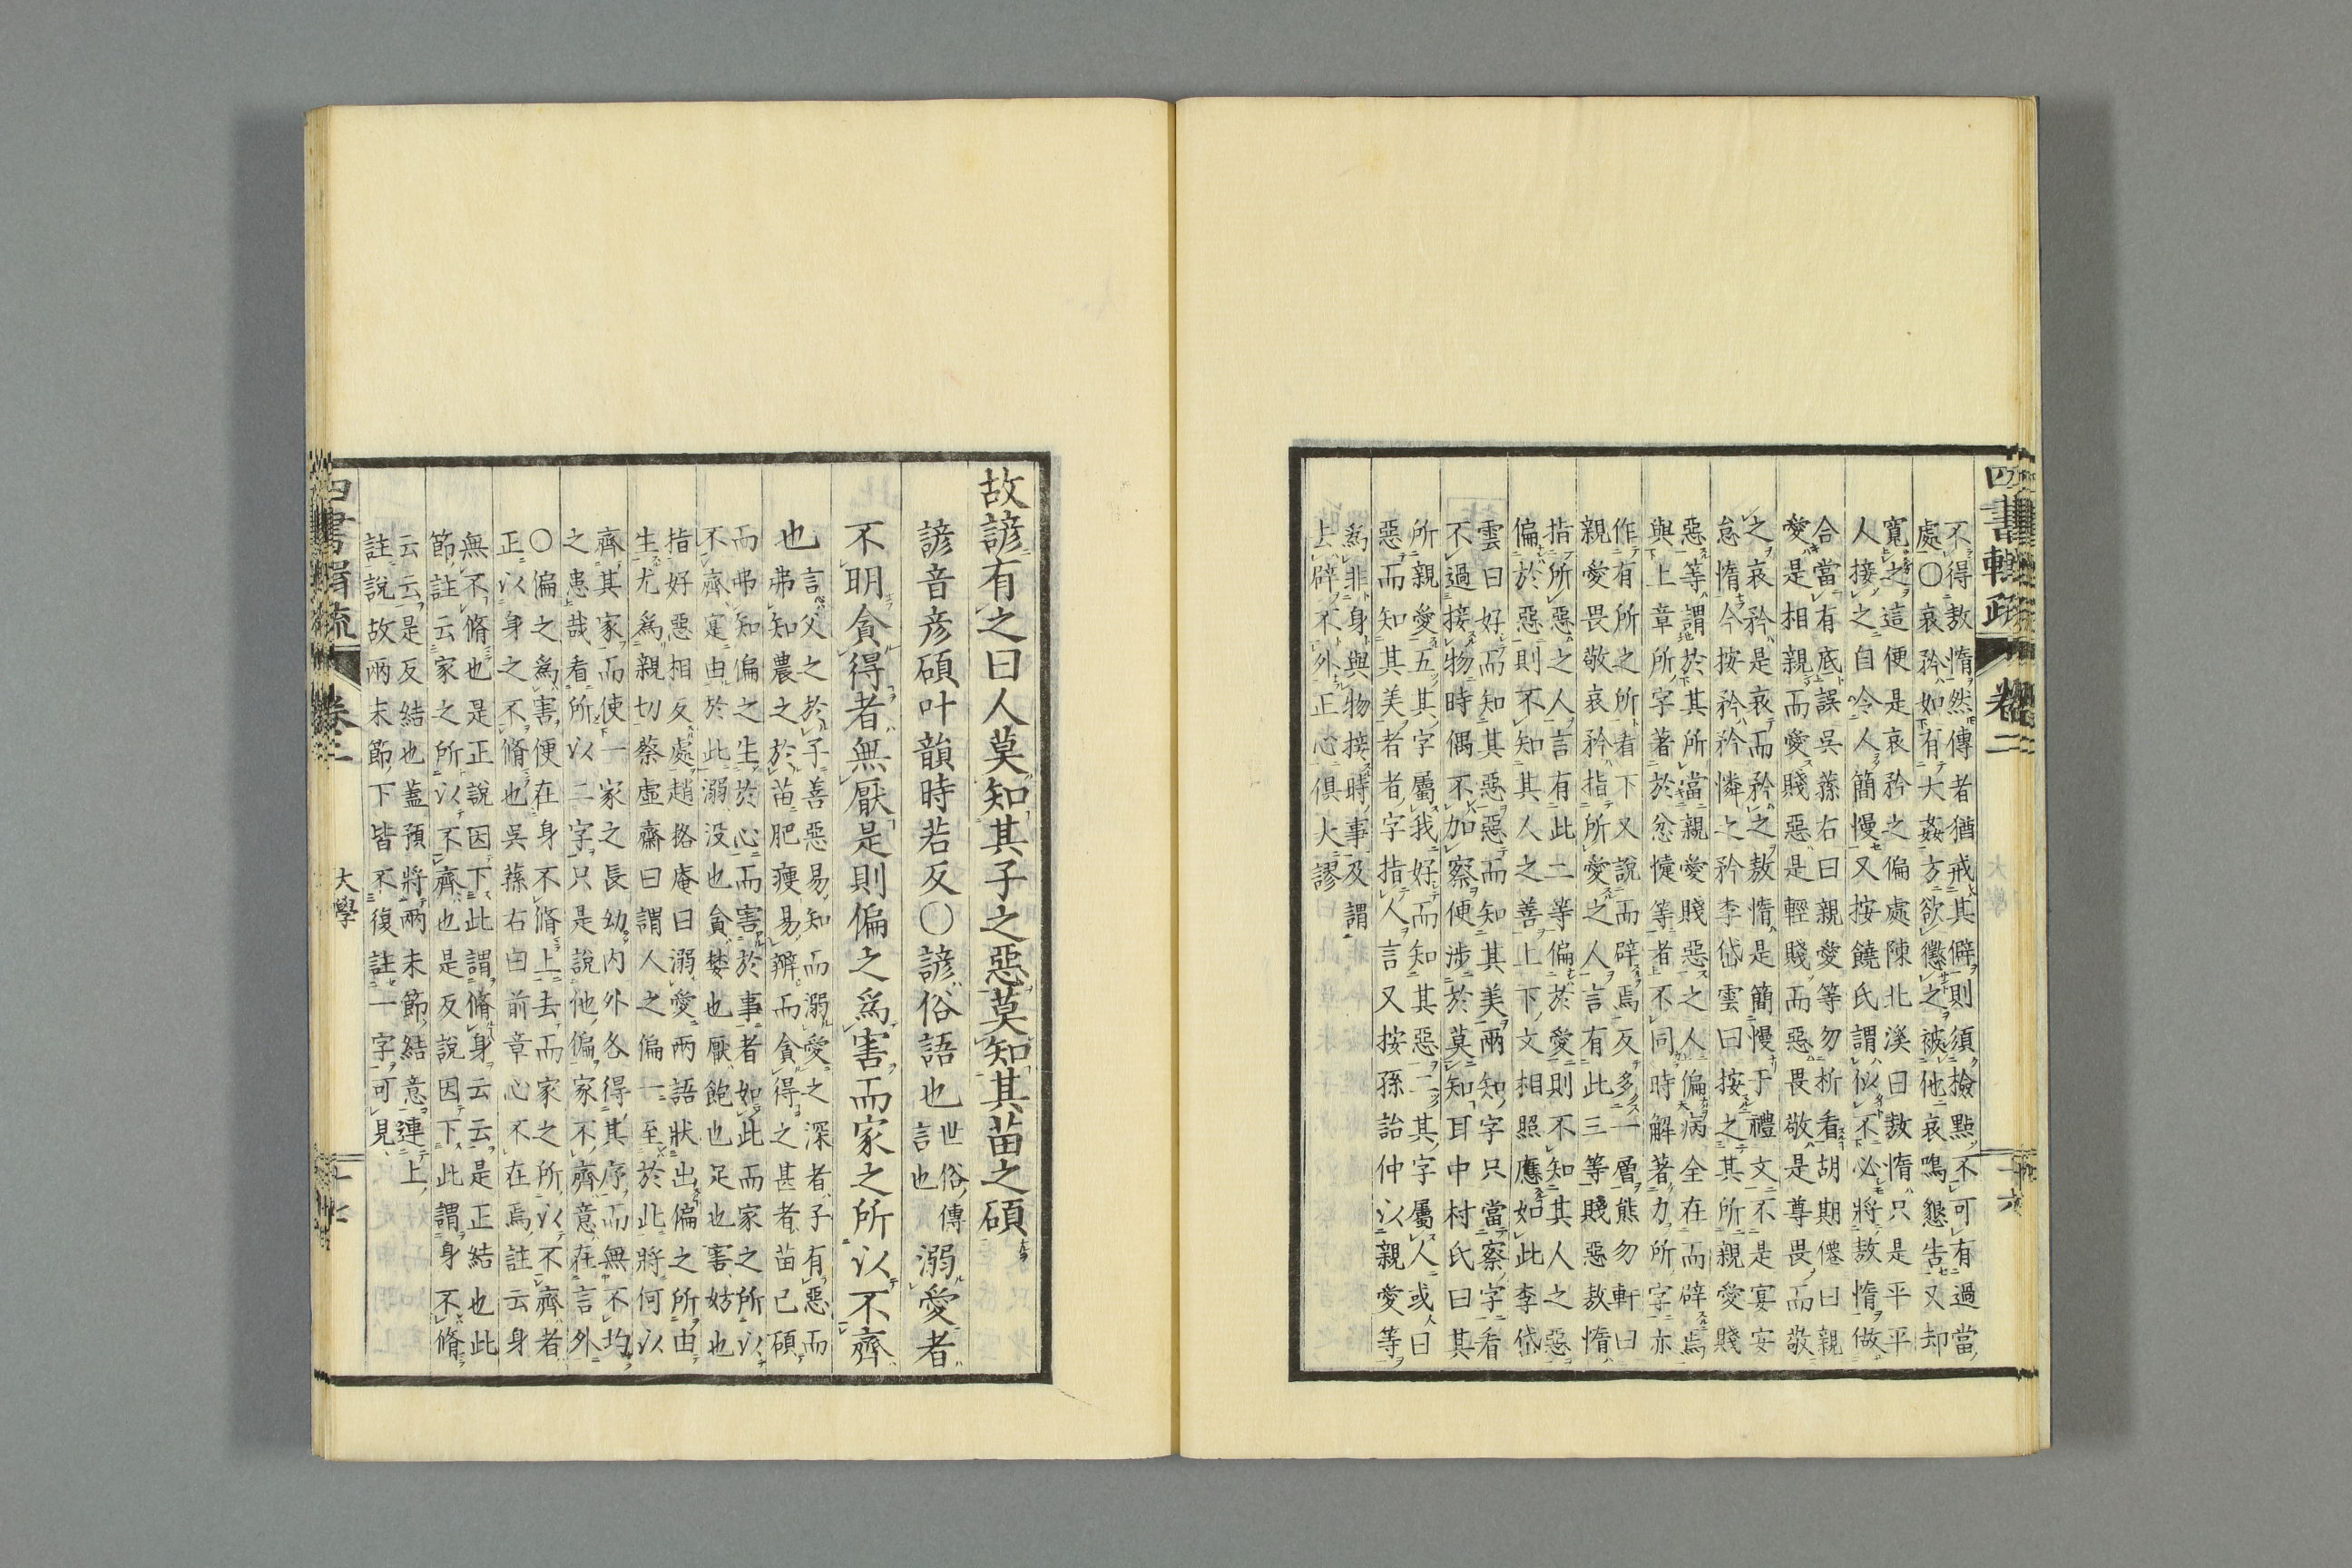 四書輯疏 卷二 十六
不得敖惰然傳者猶戒其僻則須檢點不可有過當
處〇哀矜如有大姦方欲懲之被他哀鳴懇告又却
寬之這便是哀矜之偏處陳北溪曰敖惰只是平平
人接之自令人簡慢又按饒氏謂似不必將敖惰做
合當有底誤吳蓀右曰親愛等勿析看胡期僊曰親
愛是相親而愛賤惡是輕賤而惡畏敬是尊畏而敬
之哀矜是哀而矜之敖惰是簡慢于禮文不是宴安
怠惰今按矜矜憐之矜李岱雲曰按之其所親愛賤
惡等謂於其所當親愛賤惡之人偏病全在而辟焉
與上章所字著於忿懥等者不同時解著力所字亦
作有所之所者下又說而辟焉反多一層熊勿軒曰
親愛畏敬哀矜指所愛之人言有此三等賤惡敖惰
指所惡之人言有此二等偏於愛則不知其人之惡
偏於惡則不知其人之善上下文相照應如此李岱
雲曰好而知其惡惡而知其美兩知字只當察字看
不過接物時偶不加察便涉於莫知耳中村氏曰其
所親愛五其字屬我好而知其惡二其字屬人或曰
惡而知其美者者字指人言又按孫詒仲以親愛等
爲非身與物接時事及謂
上辟不外正心俱大謬
故諺有之曰人莫知其子之惡莫知其苗之碩
諺音彥碩叶韻時若反〇諺俗語也
世俗傳
言也
溺愛者
不明貪得者無厭是則偏之爲害而家之所以不齊
也
言父之於子善惡易知而溺愛之深者子有惡而
弗知農之於苗肥瘦易辨而貪得之甚者苗已碩
而弗知偏之生於心而害於事者如此而家之所以
不齊寔由於此溺没也貪婪也厭飽也足也害妨也
指好惡相反處趙格庵曰溺愛兩語狀出偏之所由
生尤爲親切蔡虛齋曰謂人之偏一至於此將何以
齊其家而使一家之長幼内外各得其序而無不均
之患哉看所以二字只是說他偏家不齊意在言外
〇偏之爲害便在身不脩上去而家之所以不齊者
正以身之不脩也吳蓀右曰前章心不在焉註云身
無不脩也是正說因下此謂脩身云云是正結也此
節註云家之所以不齊也是反說因下此謂身不脩
云云是反結也蓋預將兩末節結意連上
註說故兩末節下皆不復註一字可見
四書輯疏 卷二 大學 十七